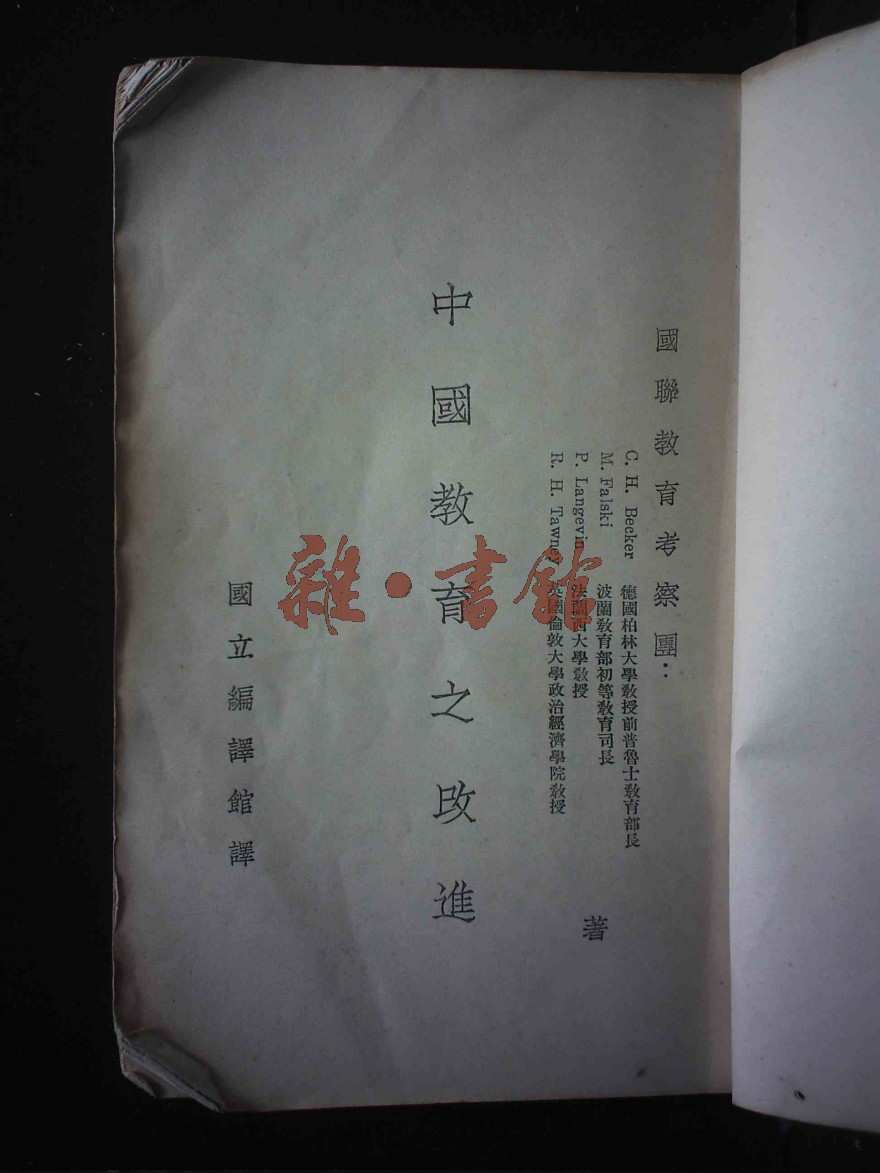 國聯教育考察團：
C. H. Becker 德國柏林大學教授前普魯士教育部長
M. Falski 波蘭教育部初等教育司長
P. Langevin 法蘭西大學教授
R. H. Tawney 英國倫敦大學政治經濟學院教授
著
中國教育之改進
國立編譯館譯
雜·書館